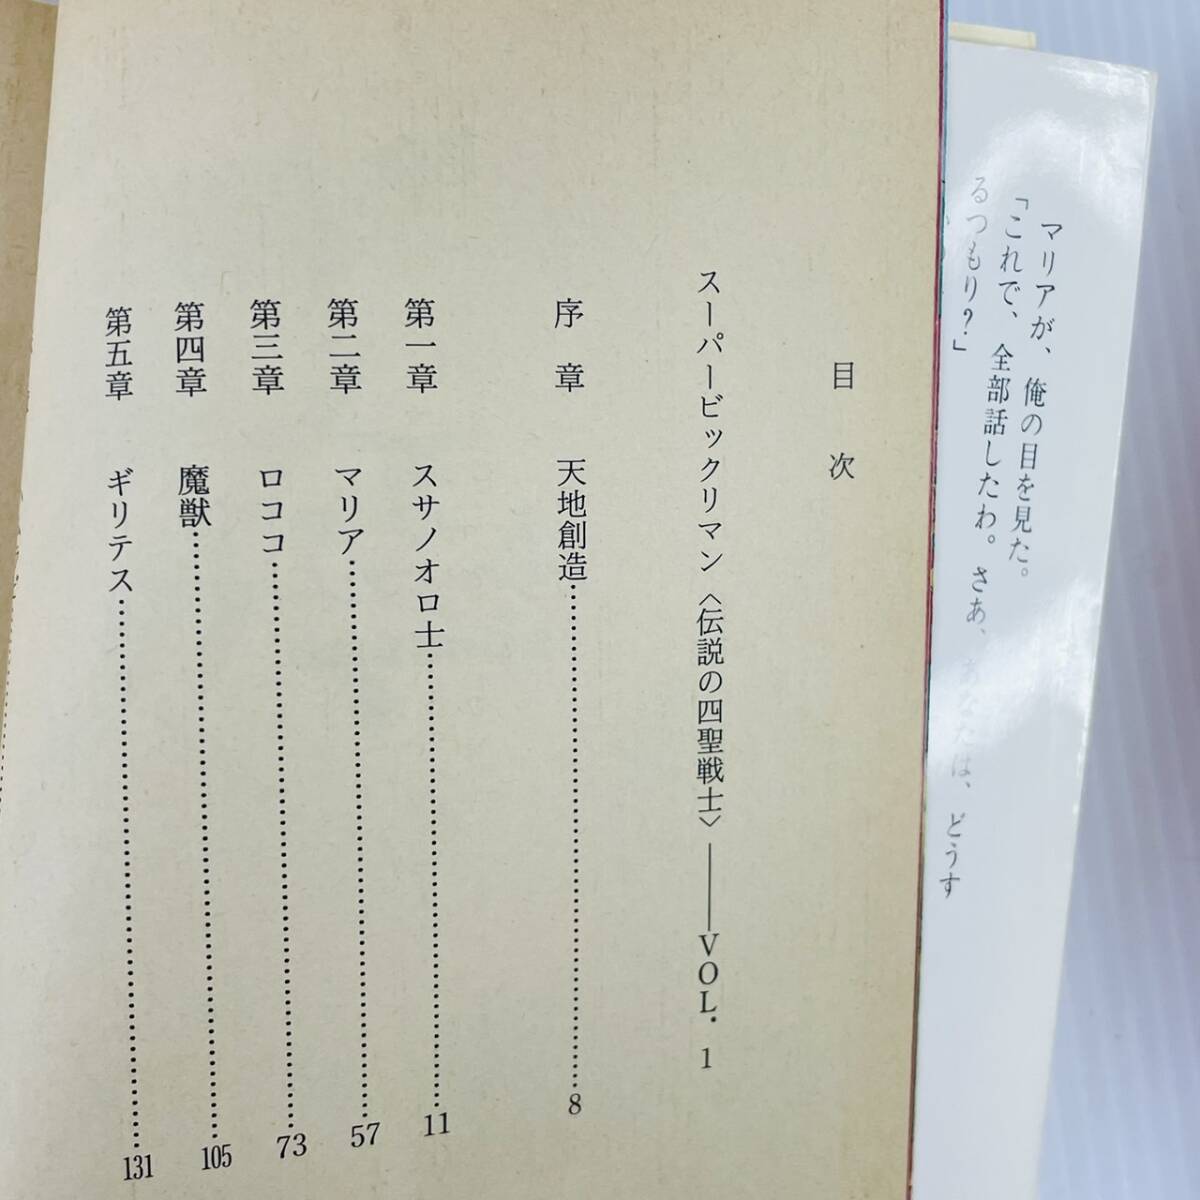 マリアが、俺の目を見た。
「これで、全部話したわ。さあ、あなたは、どうす
るつもり？」
目次
スーパービックリマン〈伝説の四聖戦士〉――VOL. 1
序章 天地創造……………………8
第一章 スサノオロ士……………………11
第二章 マリア……………………57
第三章 ロココ……………………73
第四章 魔獣……………………105
第五章 ギリテス……………………131